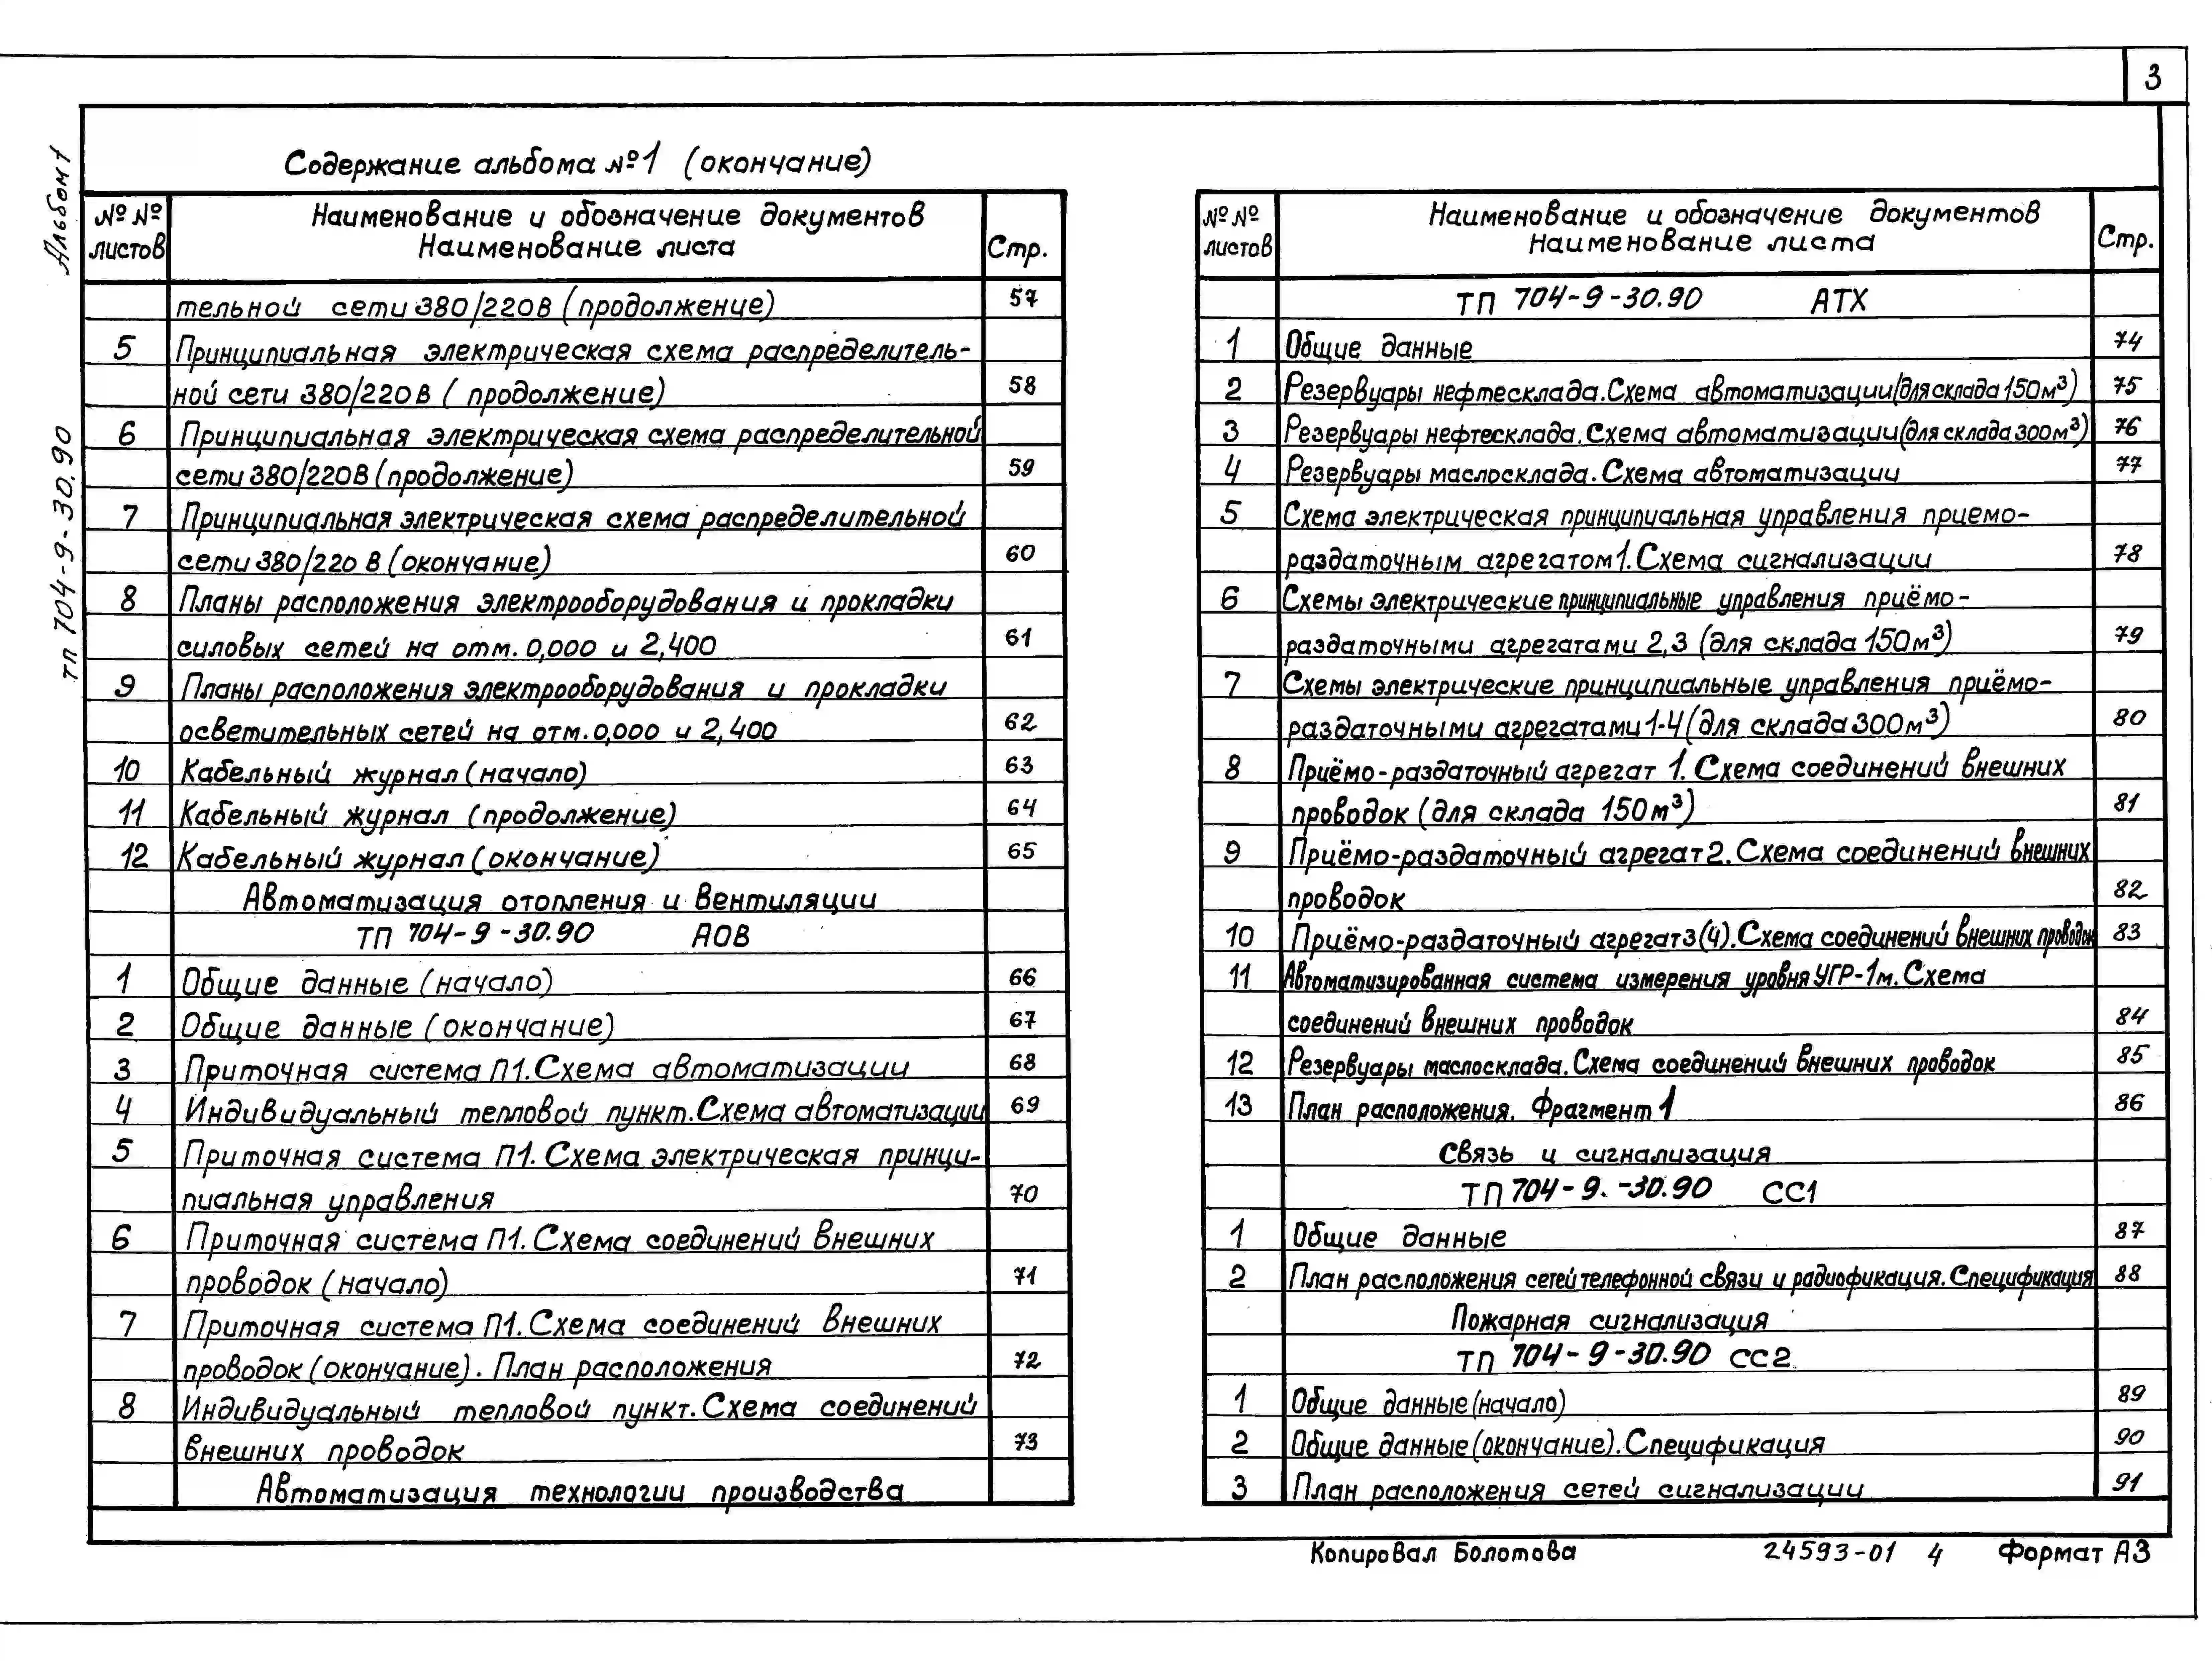 3
Альбом 1
ТП 704-9-30.90
Содержание альбома №1 (окончание)
№№ листов
Наименование и обозначение документов
Наименование листа
Стр.
тельной сети 380/220В (продолжение) 57
5 Принципиальная электрическая схема распределитель-
ной сети 380/220В (продолжение) 58
6 Принципиальная электрическая схема распределительной
сети 380/220В (продолжение) 59
7 Принципиальная электрическая схема распределительной
сети 380/220 В (окончание) 60
8 Планы расположения электрооборудования и прокладки
силовых сетей на отм. 0,000 и 2,400 61
9 Планы расположения электрооборудования и прокладки
осветительных сетей на отм. 0,000 и 2,400 62
10 Кабельный журнал (начало) 63
11 Кабельный журнал (продолжение) 64
12 Кабельный журнал (окончание) 65
Автоматизация отопления и вентиляции
ТП 704-9-30.90 АОВ
1 Общие данные (начало) 66
2 Общие данные (окончание) 67
3 Приточная система П1. Схема автоматизации 68
4 Индивидуальный тепловой пункт. Схема автоматизации 69
5 Приточная система П1. Схема электрическая принци-
пиальная управления 70
6 Приточная система П1. Схема соединений внешних
проводок (начало) 71
7 Приточная система П1. Схема соединений внешних
проводок (окончание). План расположения 72
8 Индивидуальный тепловой пункт. Схема соединений
внешних проводок 73
Автоматизация технологии производства
№№ листов
Наименование и обозначение документов
Наименование листа
Стр.
ТП 704-9-30.90 АТХ
1 Общие данные 74
2 Резервуары нефтесклада. Схема автоматизации (для склада 150м³) 75
3 Резервуары нефтесклада. Схема автоматизации (для склада 300м³) 76
4 Резервуары маслосклада. Схема автоматизации 77
5 Схема электрическая принципиальная управления приемо-
раздаточным агрегатом 1. Схема сигнализации 78
6 Схемы электрические принципиальные управления приёмо-
раздаточными агрегатами 2,3 (для склада 150м³) 79
7 Схемы электрические принципиальные управления приёмо-
раздаточными агрегатами 1-4 (для склада 300м³) 80
8 Приёмо-раздаточный агрегат 1. Схема соединений внешних
проводок (для склада 150м³) 81
9 Приёмо-раздаточный агрегат 2. Схема соединений внешних
проводок 82
10 Приёмо-раздаточный агрегат 3(4). Схема соединений внешних проводок 83
11 Автоматизированная система измерения уровня УГР-1м. Схема
соединений внешних проводок 84
12 Резервуары маслосклада. Схема соединений внешних проводок 85
13 План расположения. Фрагмент 1 86
Связь и сигнализация
ТП 704-9.-30.90 СС1
1 Общие данные 87
2 План расположения сетей телефонной связи и радиофикация. Спецификация 88
Пожарная сигнализация
ТП 704-9-30.90 СС2
1 Общие данные (начало) 89
2 Общие данные (окончание). Спецификация 90
3 План расположения сетей сигнализации 91
Копировал Болотова 24593-01 4 Формат А3